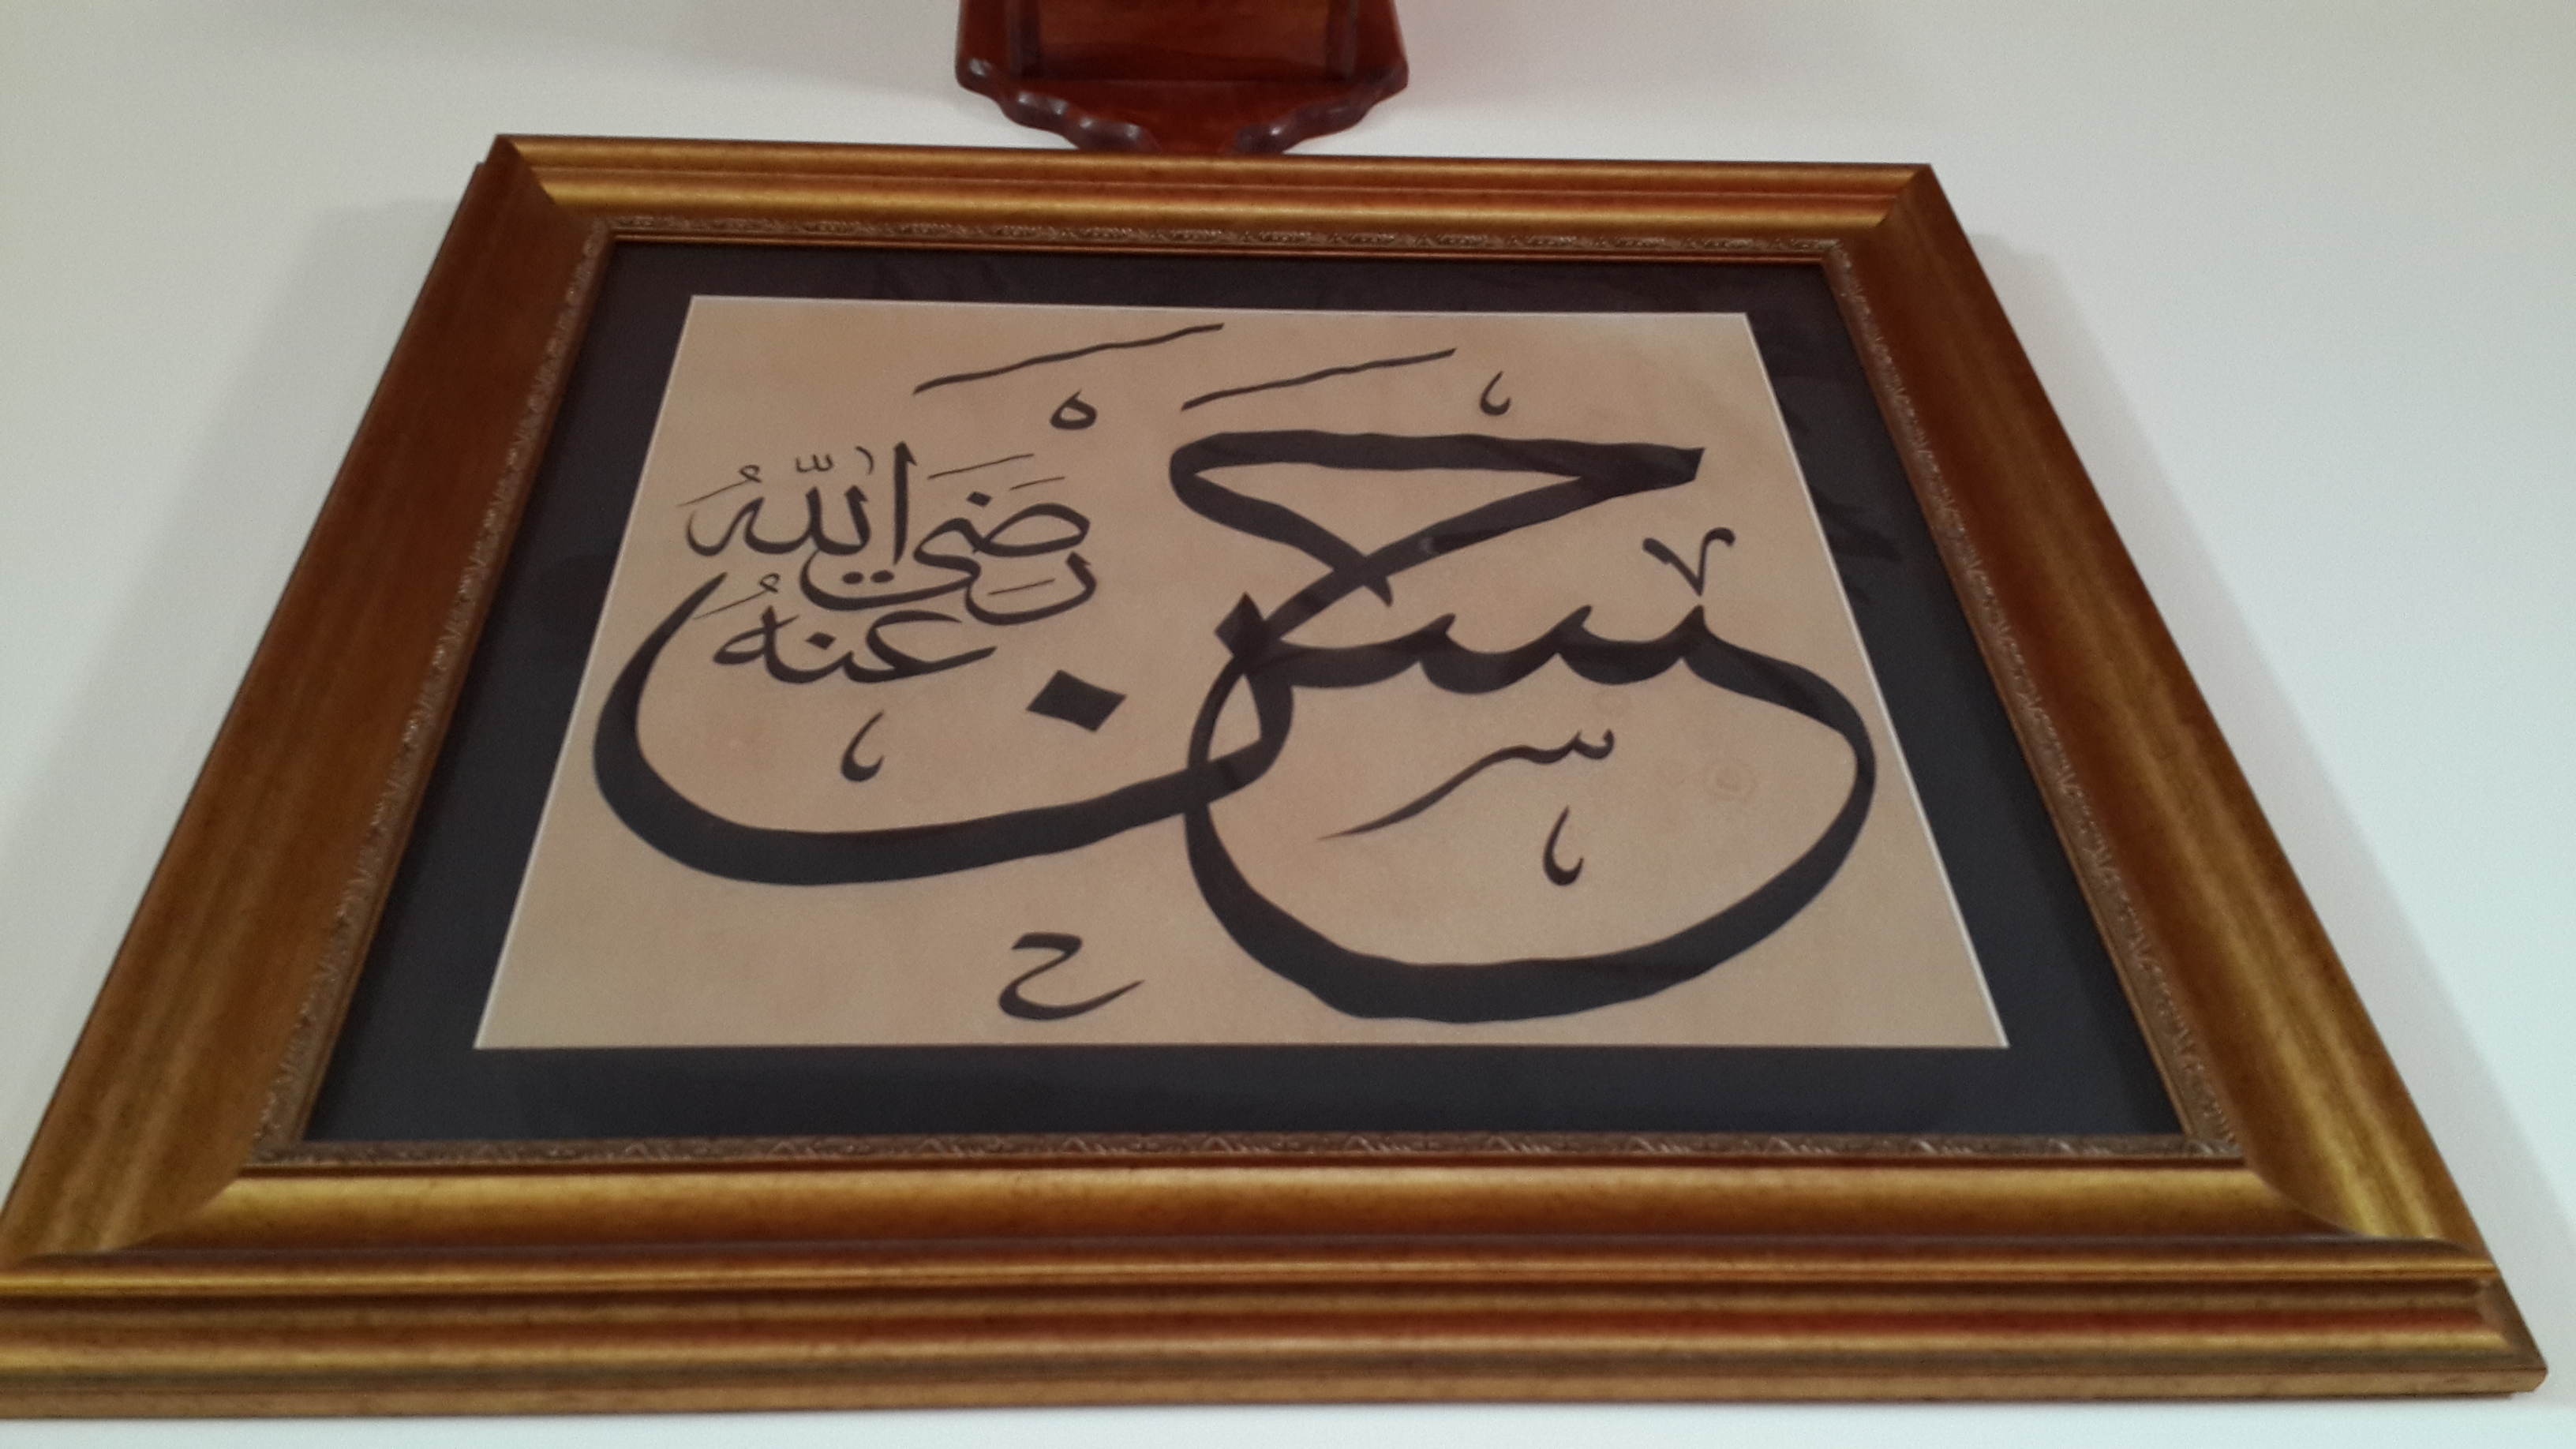 حسن
رَضِيَ اللّٰهُ
عَنهُ